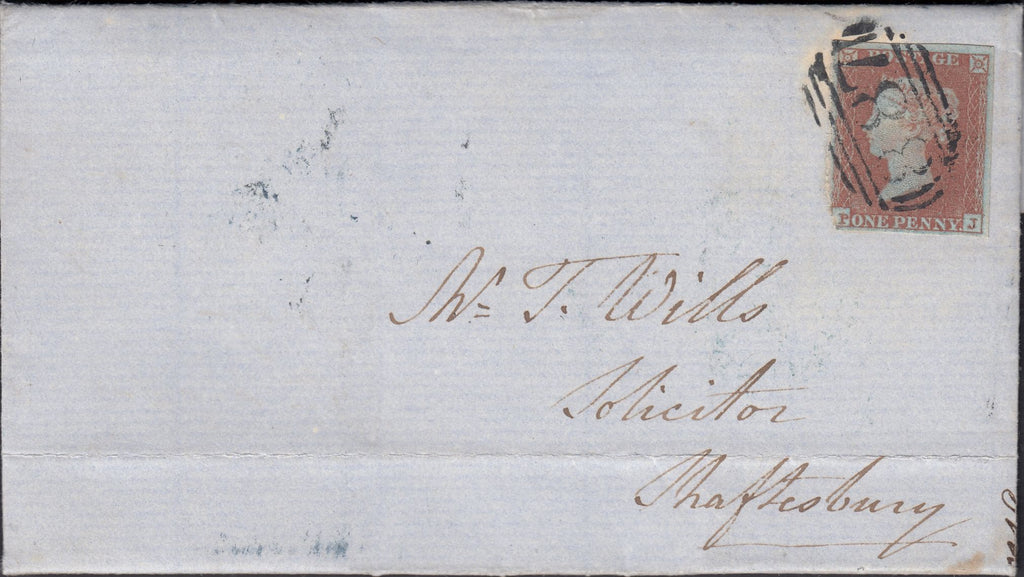 POSTAGE
ONE PENNY.
J
Mr. T. Wills
Solicitor
Shaftesbury